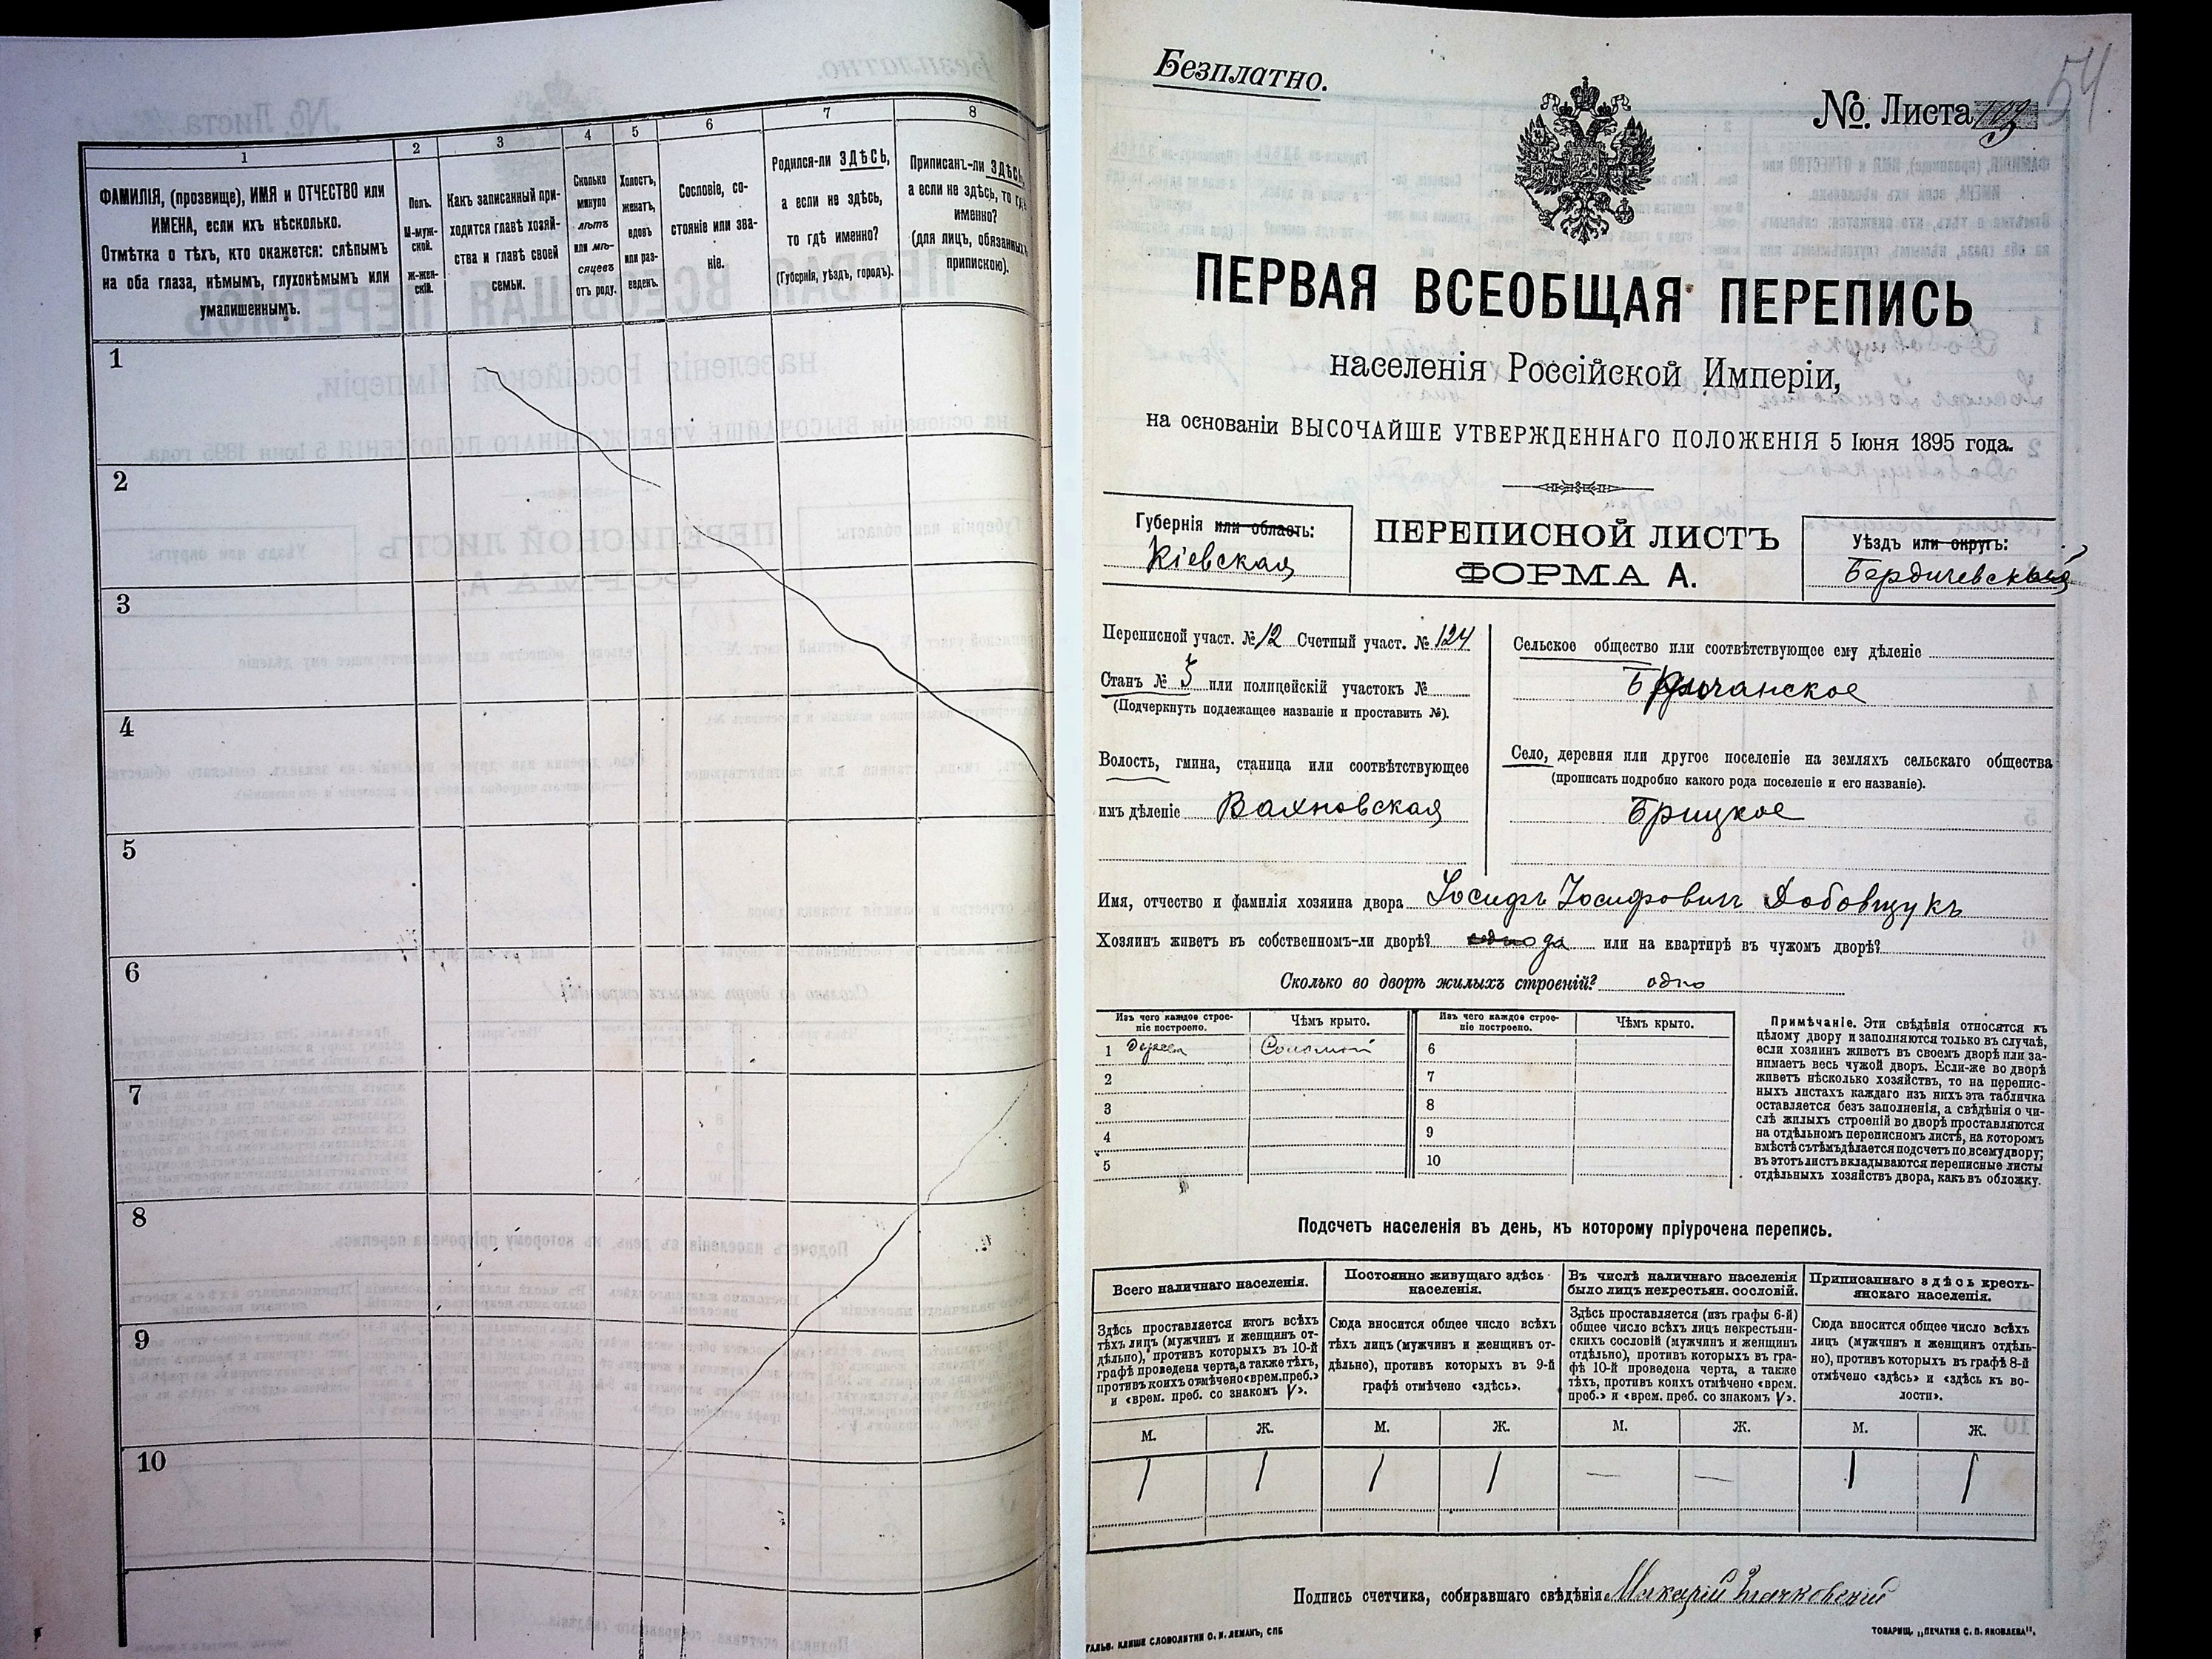 1
2
3
4
5
6
7
8
ФАМИЛІЯ, (прозвище), ИМЯ и ОТЧЕСТВО или
ИМЕНА, если ихъ нѣсколько.
Отмѣтка о тѣхъ, кто окажется: слѣпымъ
на оба глаза, нѣмымъ, глухонѣмымъ или
умалишеннымъ.
Полъ.
М-муж-
ской.
Ж-жен-
скій.
Какъ записанный при-
ходится главѣ хозяй-
ства и главѣ своей
семьи.
Сколько
минуло
лѣтъ
или мѣ-
сяцевъ
отъ роду.
Холостъ,
женатъ,
вдовъ
или раз-
веденъ.
Сословіе, со-
стояніе или зва-
ніе.
Родился-ли ЗДѢСЬ,
а если не здѣсь,
то гдѣ именно?
(Губернія, уѣздъ, городъ).
Приписанъ-ли ЗДѢСЬ,
а если не здѣсь, то гдѣ
именно?
(для лицъ, обязанныхъ
припискою).
1
2
3
4
5
6
7
8
9
10
Безплатно.
№ Листа 103
54
ПЕРВАЯ ВСЕОБЩАЯ ПЕРЕПИСЬ
населенія Россійской Имперіи,
на основаніи ВЫСОЧАЙШЕ УТВЕРЖДЕННАГО ПОЛОЖЕНІЯ 5 Іюня 1895 года.
Губернія или область:
Кіевская
ПЕРЕПИСНОЙ ЛИСТЪ
ФОРМА А.
Уѣздъ или округъ:
Бердичевскій
Переписной участ. № 12 Счетный участ. № 124
Станъ № 5 или полицейскій участокъ №
(Подчеркнуть подлежащее названіе и проставить №).
Волость, гмина, станица или соотвѣтствующее
имъ дѣленіе Вахновская
Сельское общество или соотвѣтствующее ему дѣленіе
Село, деревня или другое поселеніе на земляхъ сельскаго общества
(прописать подробно какого рода поселеніе и его названіе).
Брицкое
Имя, отчество и фамилія хозяина двора Іосифъ Іосифовичъ Добовщукъ
Хозяинъ живетъ въ собственномъ-ли дворѣ? да или на квартирѣ въ чужомъ дворѣ?
Сколько во дворѣ жилыхъ строеній? одно
Изъ чего каждое строе-
ніе построено.
Чѣмъ крыто.
Изъ чего каждое строе-
ніе построено.
Чѣмъ крыто.
1 Соломой 6
2 7
3 8
4 9
5 10
Примѣчаніе. Эти свѣдѣнія относятся къ
цѣлому двору и заполняются только въ случаѣ,
если хозяинъ живетъ въ своемъ дворѣ или за-
нимаетъ весь чужой дворъ. Если-же во дворѣ
живетъ нѣсколько хозяйствъ, то на перепис-
ныхъ листахъ каждаго изъ нихъ эта табличка
оставляется безъ заполненія, а свѣдѣнія о чи-
слѣ жилыхъ строеній во дворѣ проставляются
на отдѣльномъ переписномъ листѣ, на которомъ
вмѣстѣ съ тѣмъ дѣлается подсчетъ по всему двору;
въ этотъ листъ вкладываются переписные листы
отдѣльныхъ хозяйствъ двора, какъ въ обложку.
Подсчетъ населенія въ день, къ которому пріурочена перепись.
Всего наличнаго населенія.
Здѣсь проставляется итогъ всѣхъ
тѣхъ лицъ (мужчинъ и женщинъ от-
дѣльно), противъ которыхъ въ 10-й
графѣ проведена черта, а также тѣхъ,
противъ коихъ отмѣчено «врем. преб.»
и «врем. преб. со знакомъ V».
Постоянно живущаго здѣсь
населенія.
Сюда вносится общее число всѣхъ
тѣхъ лицъ (мужчинъ и женщинъ от-
дѣльно), противъ которыхъ въ 9-й
графѣ отмѣчено «здѣсь».
Въ числѣ наличнаго населенія
было лицъ некрестьян. сословій.
Здѣсь проставляется (изъ графы 6-й)
общее число всѣхъ лицъ некрестьян-
скихъ сословій (мужчинъ и женщинъ
отдѣльно), противъ которыхъ въ гра-
фѣ 10-й проведена черта, а также
тѣхъ, противъ коихъ отмѣчено «врем.
преб.» и «врем. преб. со знакомъ V».
Приписаннаго здѣсь кресть-
янскаго населенія.
Сюда вносится общее число всѣхъ
лицъ (мужчинъ и женщинъ отдѣль-
но), противъ которыхъ въ графѣ 8-й
отмѣчено «здѣсь» и «здѣсь къ во-
лости».
М. Ж. М. Ж. М. Ж. М. Ж.
1 1 1 1 — — 1 1
Подпись счетчика, собиравшаго свѣдѣнія Макарій
ГАЛЬВ. КЛИШЕ СЛОВОЛИТНИ О. И. ЛЕМАНЪ, СПБ
ТОВАРИЩ. „ПЕЧАТНЯ С. П. ЯКОВЛЕВА".